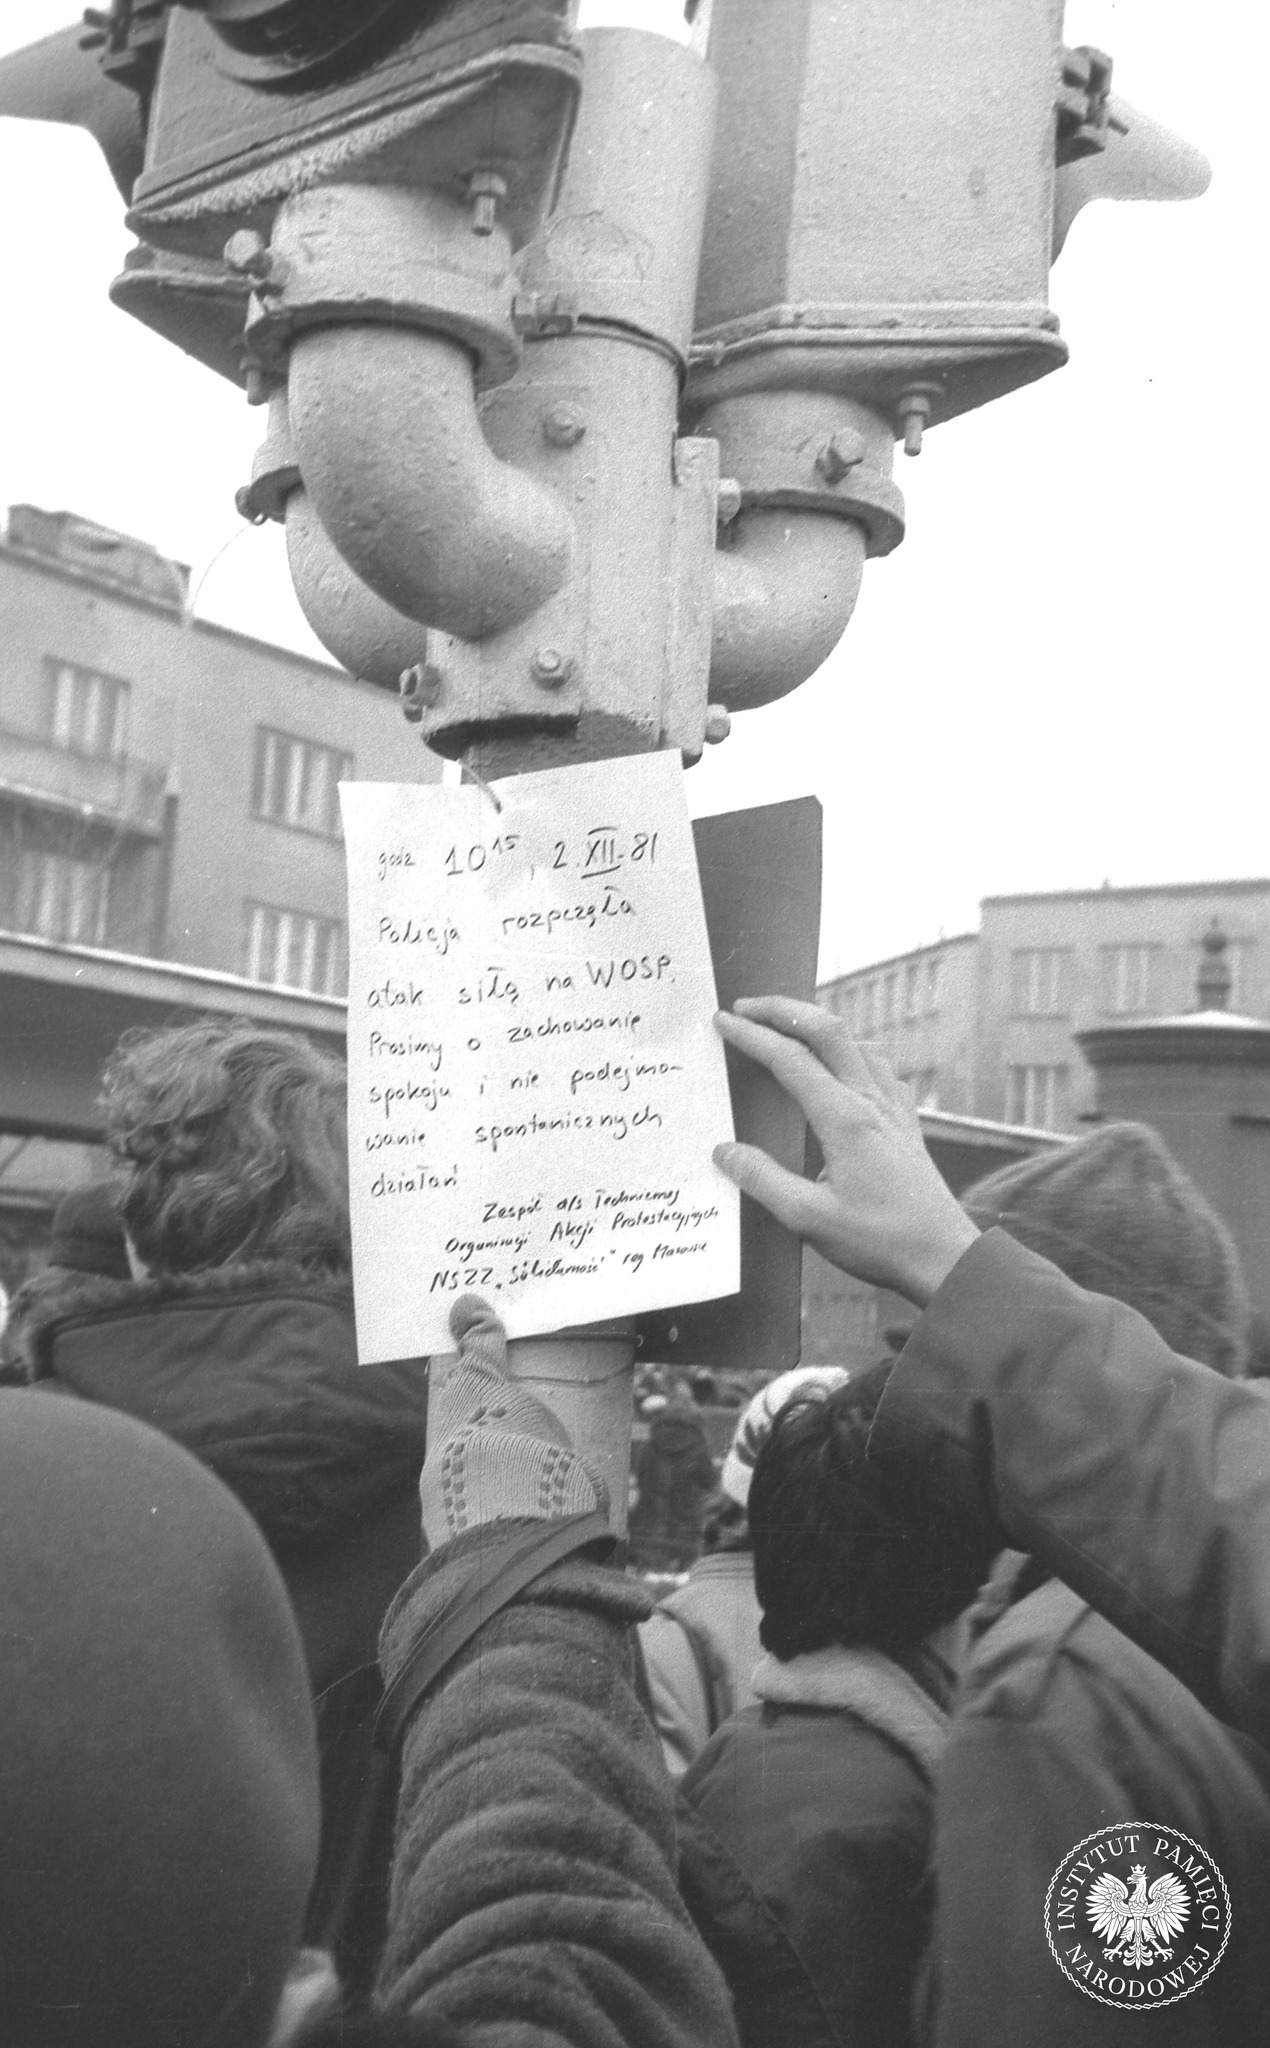 godz 10¹⁵, 2.XII-81
Policja rozpczęła
atak siłą na WOSP.
Prosimy o zachowanie
spokoju i nie podejmo-
wanie spontanicznych
działań
Zespół d/s Technicznej
Organizacji Akcji Protestacyjnych
NSZZ „Solidarność" reg Mazowsze
INSTYTUT PAMIĘCI
NARODOWEJ